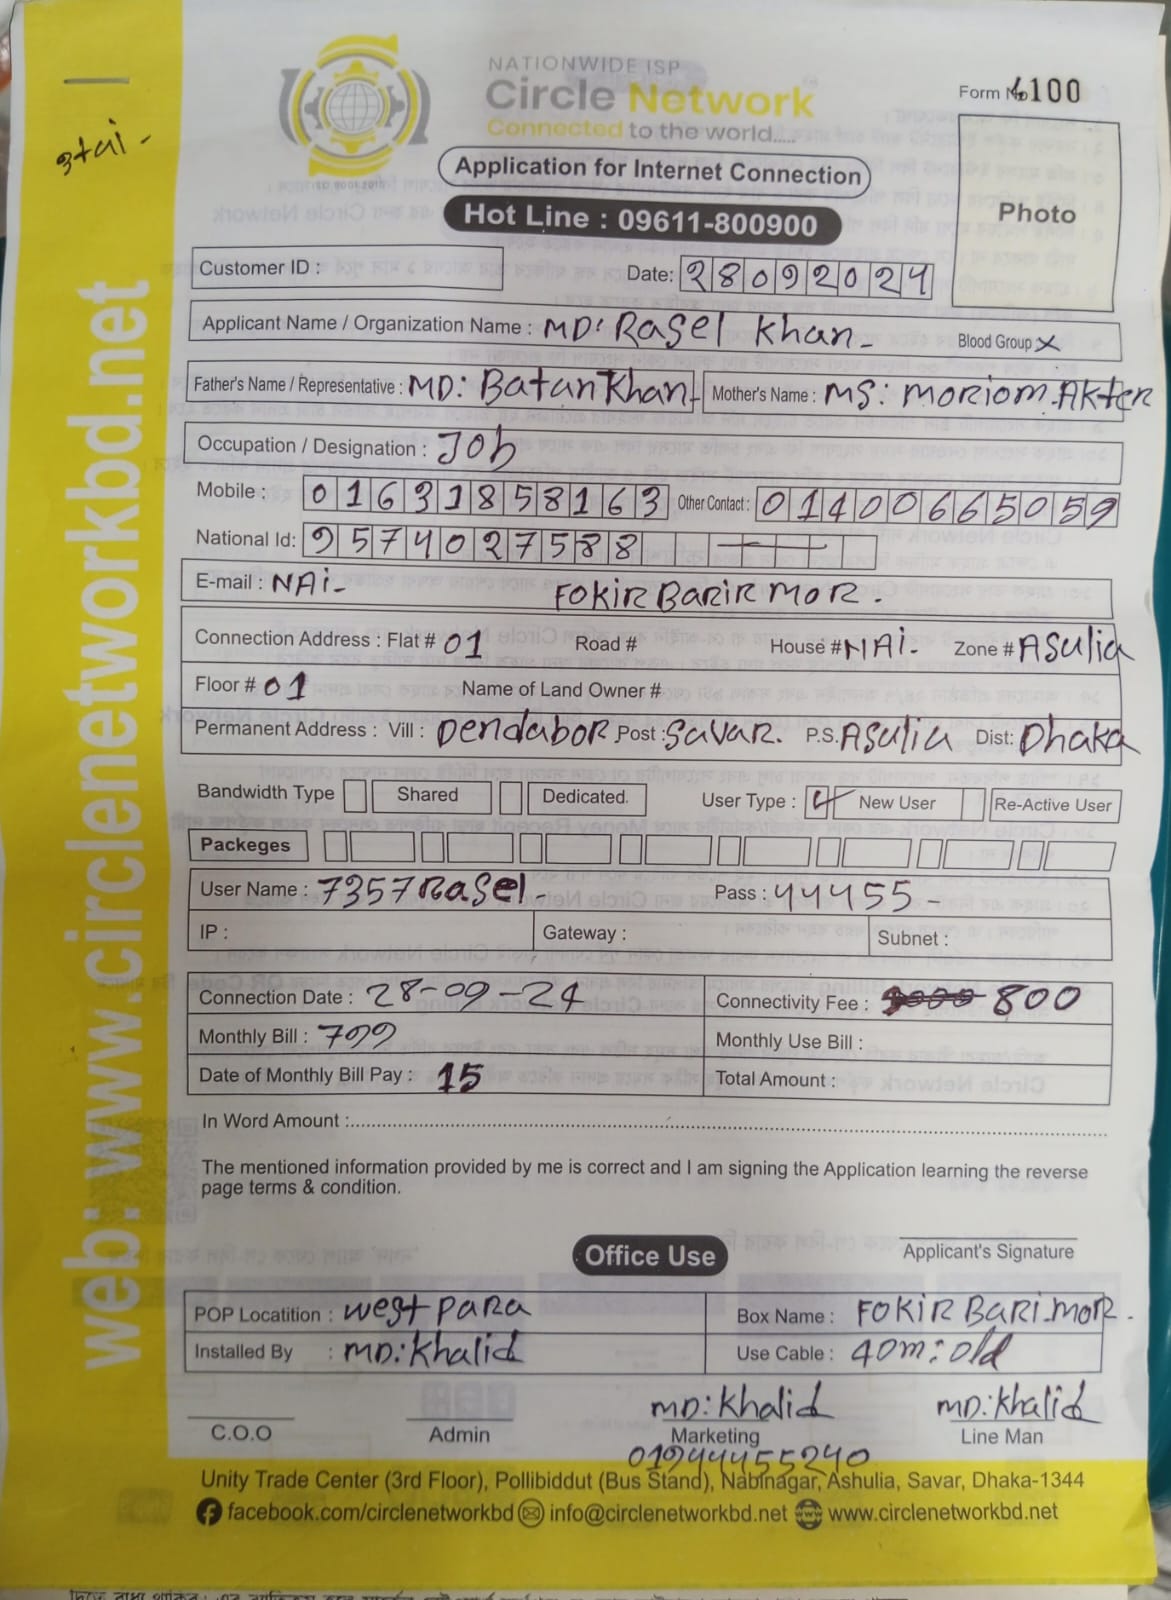 NATIONWIDE ISP
Circle Network
Connected to the world.....
Form No 4100
Application for Internet Connection
Photo
Hot Line : 09611-800900
Customer ID :
Date: 28092024
Applicant Name / Organization Name : MD: Rasel Khan-
Blood Group X
Father's Name / Representative : MD: Batan Khan-
Mother's Name : MS: MORIOM. AKteR
Occupation / Designation : Job
Mobile : 01631858163 Other Contact : 01400665059
National Id: 9574027588
E-mail : NAi- FOKIR BARIR MOR.
Connection Address : Flat # 01 Road # House # NAi- Zone # Asulia
Floor # 01 Name of Land Owner #
Permanent Address : Vill : Dendabor Post : Savar. P.S. Asulia Dist: Dhaka
Bandwidth Type Shared Dedicated. User Type : New User Re-Active User
Packeges
User Name : 7357Rasel- Pass : 44455-
IP : Gateway : Subnet :
Connection Date : 28-09-24 Connectivity Fee : 800
Monthly Bill : 799 Monthly Use Bill :
Date of Monthly Bill Pay : 15 Total Amount :
In Word Amount :
The mentioned information provided by me is correct and I am signing the Application learning the reverse
page terms & condition.
Office Use
Applicant's Signature
POP Locatition : west PARA Box Name : FOKIR BARI.MOR.
Installed By : MD: Khalid Use Cable : 40m: old
MD: Khalid MD: Khalid
C.O.O Admin Marketing Line Man
01944455240
Unity Trade Center (3rd Floor), Pollibiddut (Bus Stand), Nabinagar, Ashulia, Savar, Dhaka-1344
facebook.com/circlenetworkbd info@circlenetworkbd.net www.circlenetworkbd.net
web: www.circlenetworkbd.net